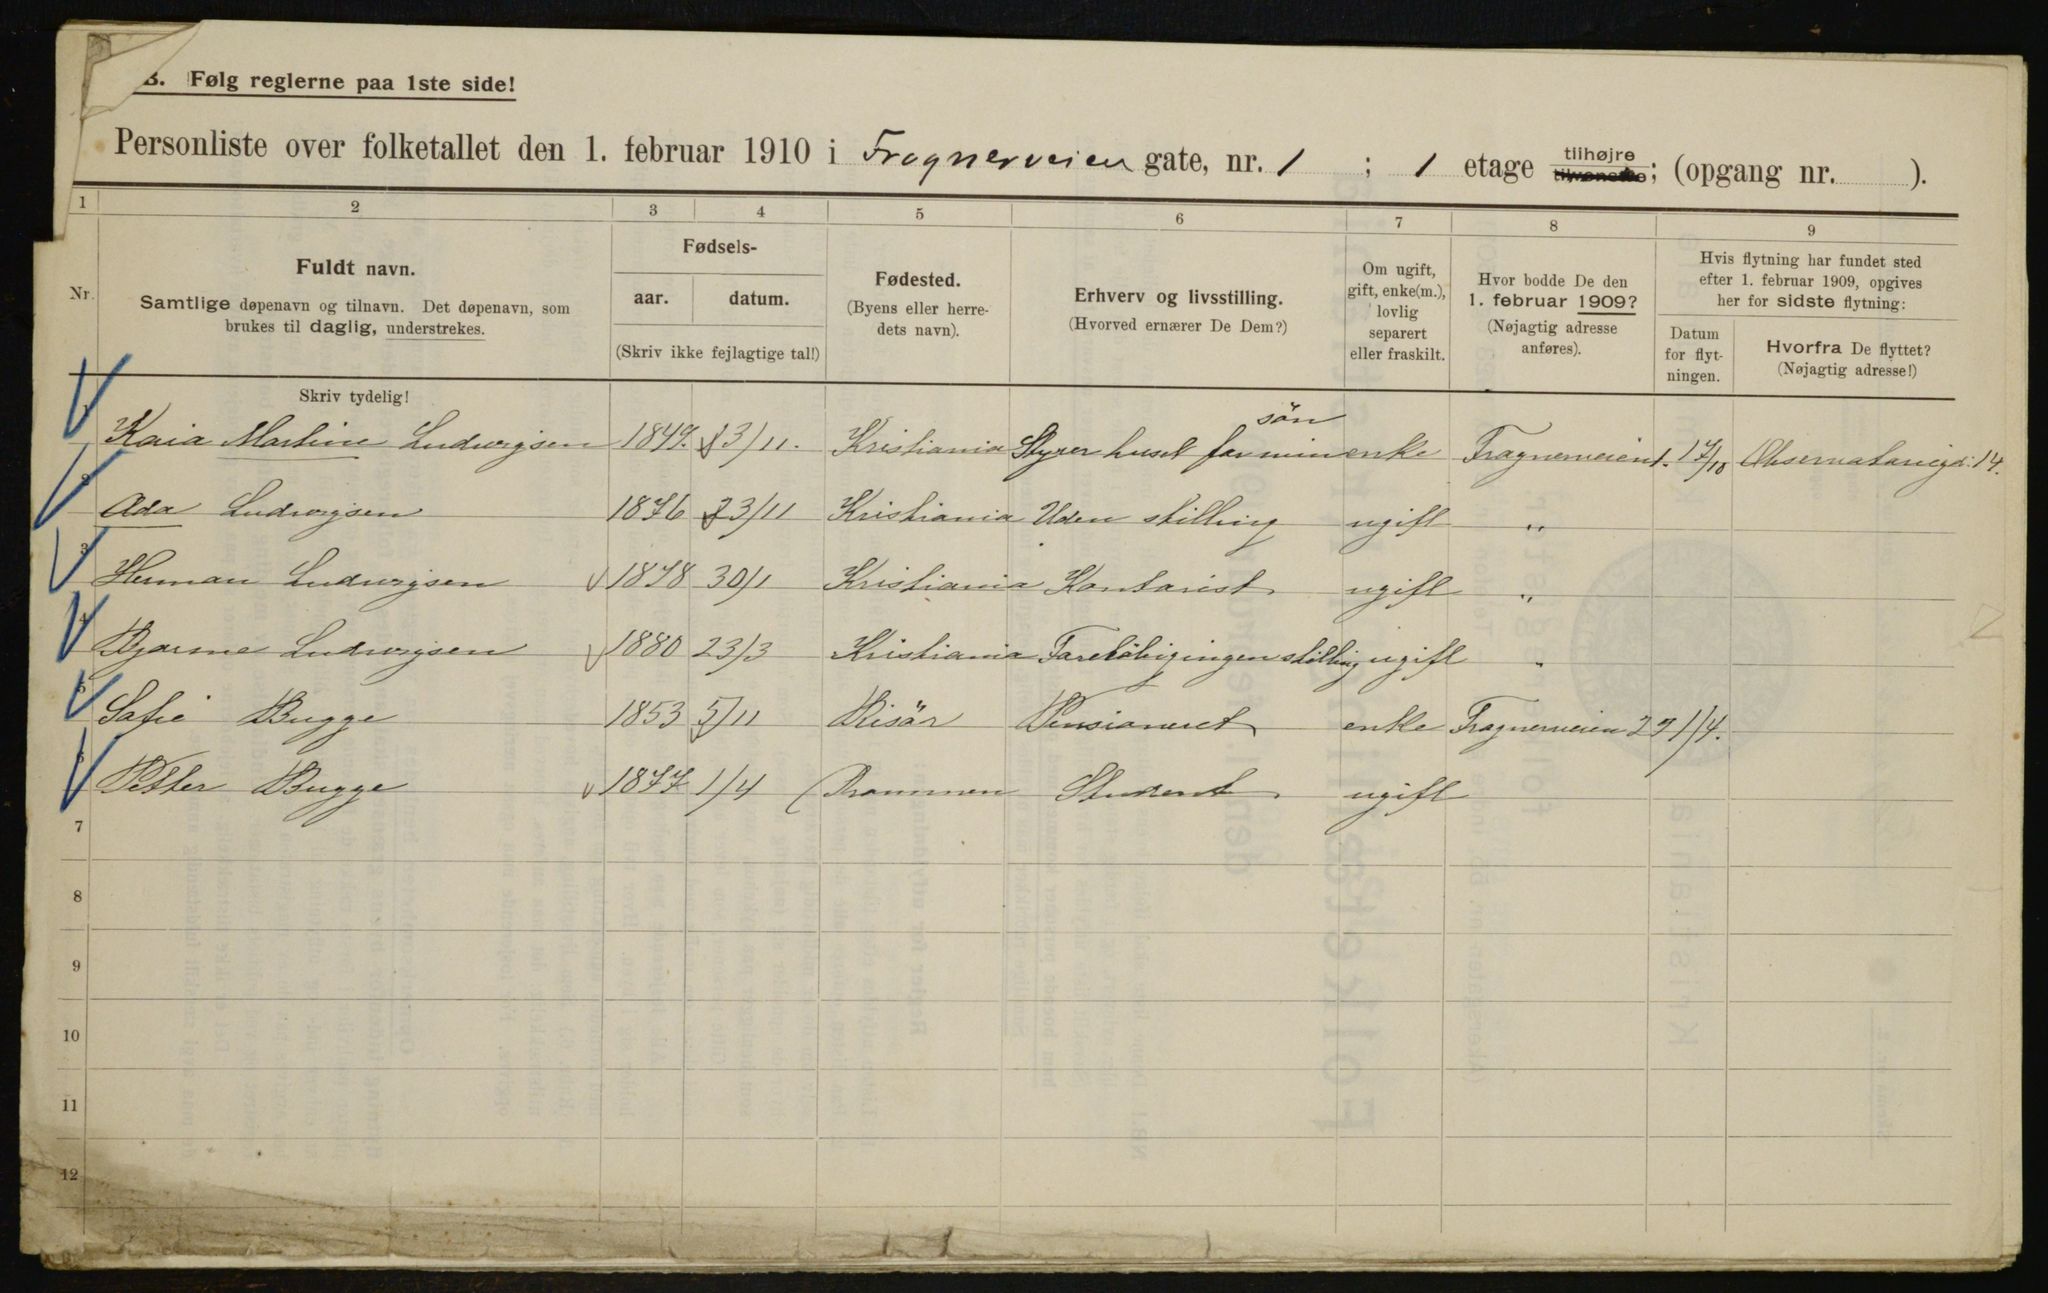 B. Følg reglerne paa 1ste side!
Personliste over folketallet den 1. februar 1910 i Frognerveien gate, nr. 1 ; 1 etage tilhøjre tilvenstre; (opgang nr. ).
1 2 3 4 5 6 7 8 9
Nr.
Fuldt navn.
Samtlige døpenavn og tilnavn. Det døpenavn, som
brukes til daglig, understrekes.
Fødsels-
aar. datum.
(Skriv ikke fejlagtige tal!)
Fødested.
(Byens eller herre-
dets navn).
Erhverv og livsstilling.
(Hvorved ernærer De Dem?)
Om ugift,
gift, enke(m.),
lovlig
separert
eller fraskilt.
Hvor bodde De den
1. februar 1909?
(Nøjagtig adresse
anføres).
Hvis flytning har fundet sted
efter 1. februar 1909, opgives
her for sidste flytning:
Datum
for flyt-
ningen.
Hvorfra De flyttet?
(Nøjagtig adresse!)
Skriv tydelig!
søn
1 Kaia Martine Ludvigsen 1849. 13/11. Kristiania Styrer huset for min enke Frognerveien 1. 17/10 Observatorigd: 14.
2 Ada Ludvigsen 1876 23/11 Kristiania Uden stilling ugift "
3 Herman Ludvigsen 1878 30/1 Kristiania Kontorist ugift "
4 Bjarne Ludvigsen 1880 23/3 Kristiania Foreløbig ingen stilling ugift "
5 Sofie Bugge 1853 5/11 Risør Pensioneret enke Frognerveien 29 1/4.
6 Petter Bugge 1877 1/4 Drammen Student ugift
7
8
9
10
11
12